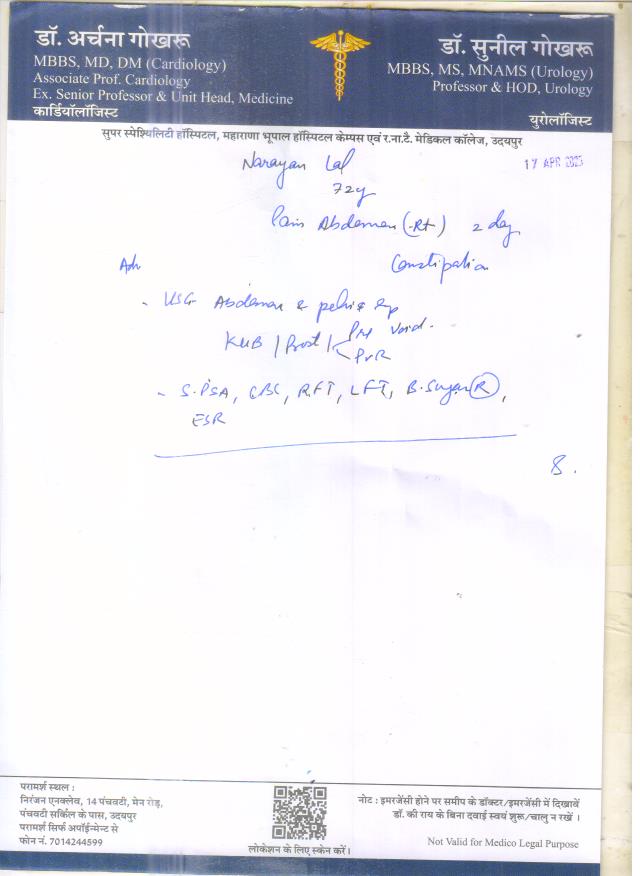 डॉ. अर्चना गोखरू
MBBS, MD, DM (Cardiology)
Associate Prof. Cardiology
Ex. Senior Professor & Unit Head, Medicine
कार्डियॉलॉजिस्ट
डॉ. सुनील गोखरू
MBBS, MS, MNAMS (Urology)
Professor & HOD, Urology
युरोलॉजिस्ट
सुपर स्पेश्यिलिटी हॉस्पिटल, महाराणा भूपाल हॉस्पिटल केम्पस एवं र.ना.टै. मेडिकल कॉलेज, उदयपुर
Narayan Lal
17 APR 2023
72y
Pain Abdomen (Rt) 2 day
Constipation
Adv
- USG Abdomen & pelvis
KUB / Prost / Pre Void.
PVR
- S.PSA, CBC, RFT, LFT, B.Sugar (R),
ESR
8.
परामर्श स्थल :
निरंजन एनक्लेव, 14 पंचवटी, मेन रोड़,
पंचवटी सर्किल के पास, उदयपुर
परामर्श सिर्फ अपॉईन्मेन्ट से
फोन नं. 7014244599
लोकेशन के लिए स्केन करें।
नोट : इमरजेंसी होने पर समीप के डॉक्टर/इमरजेंसी में दिखावें
डॉ. की राय के बिना दवाई स्वयं शुरू/चालु न रखें ।
Not Valid for Medico Legal Purpose